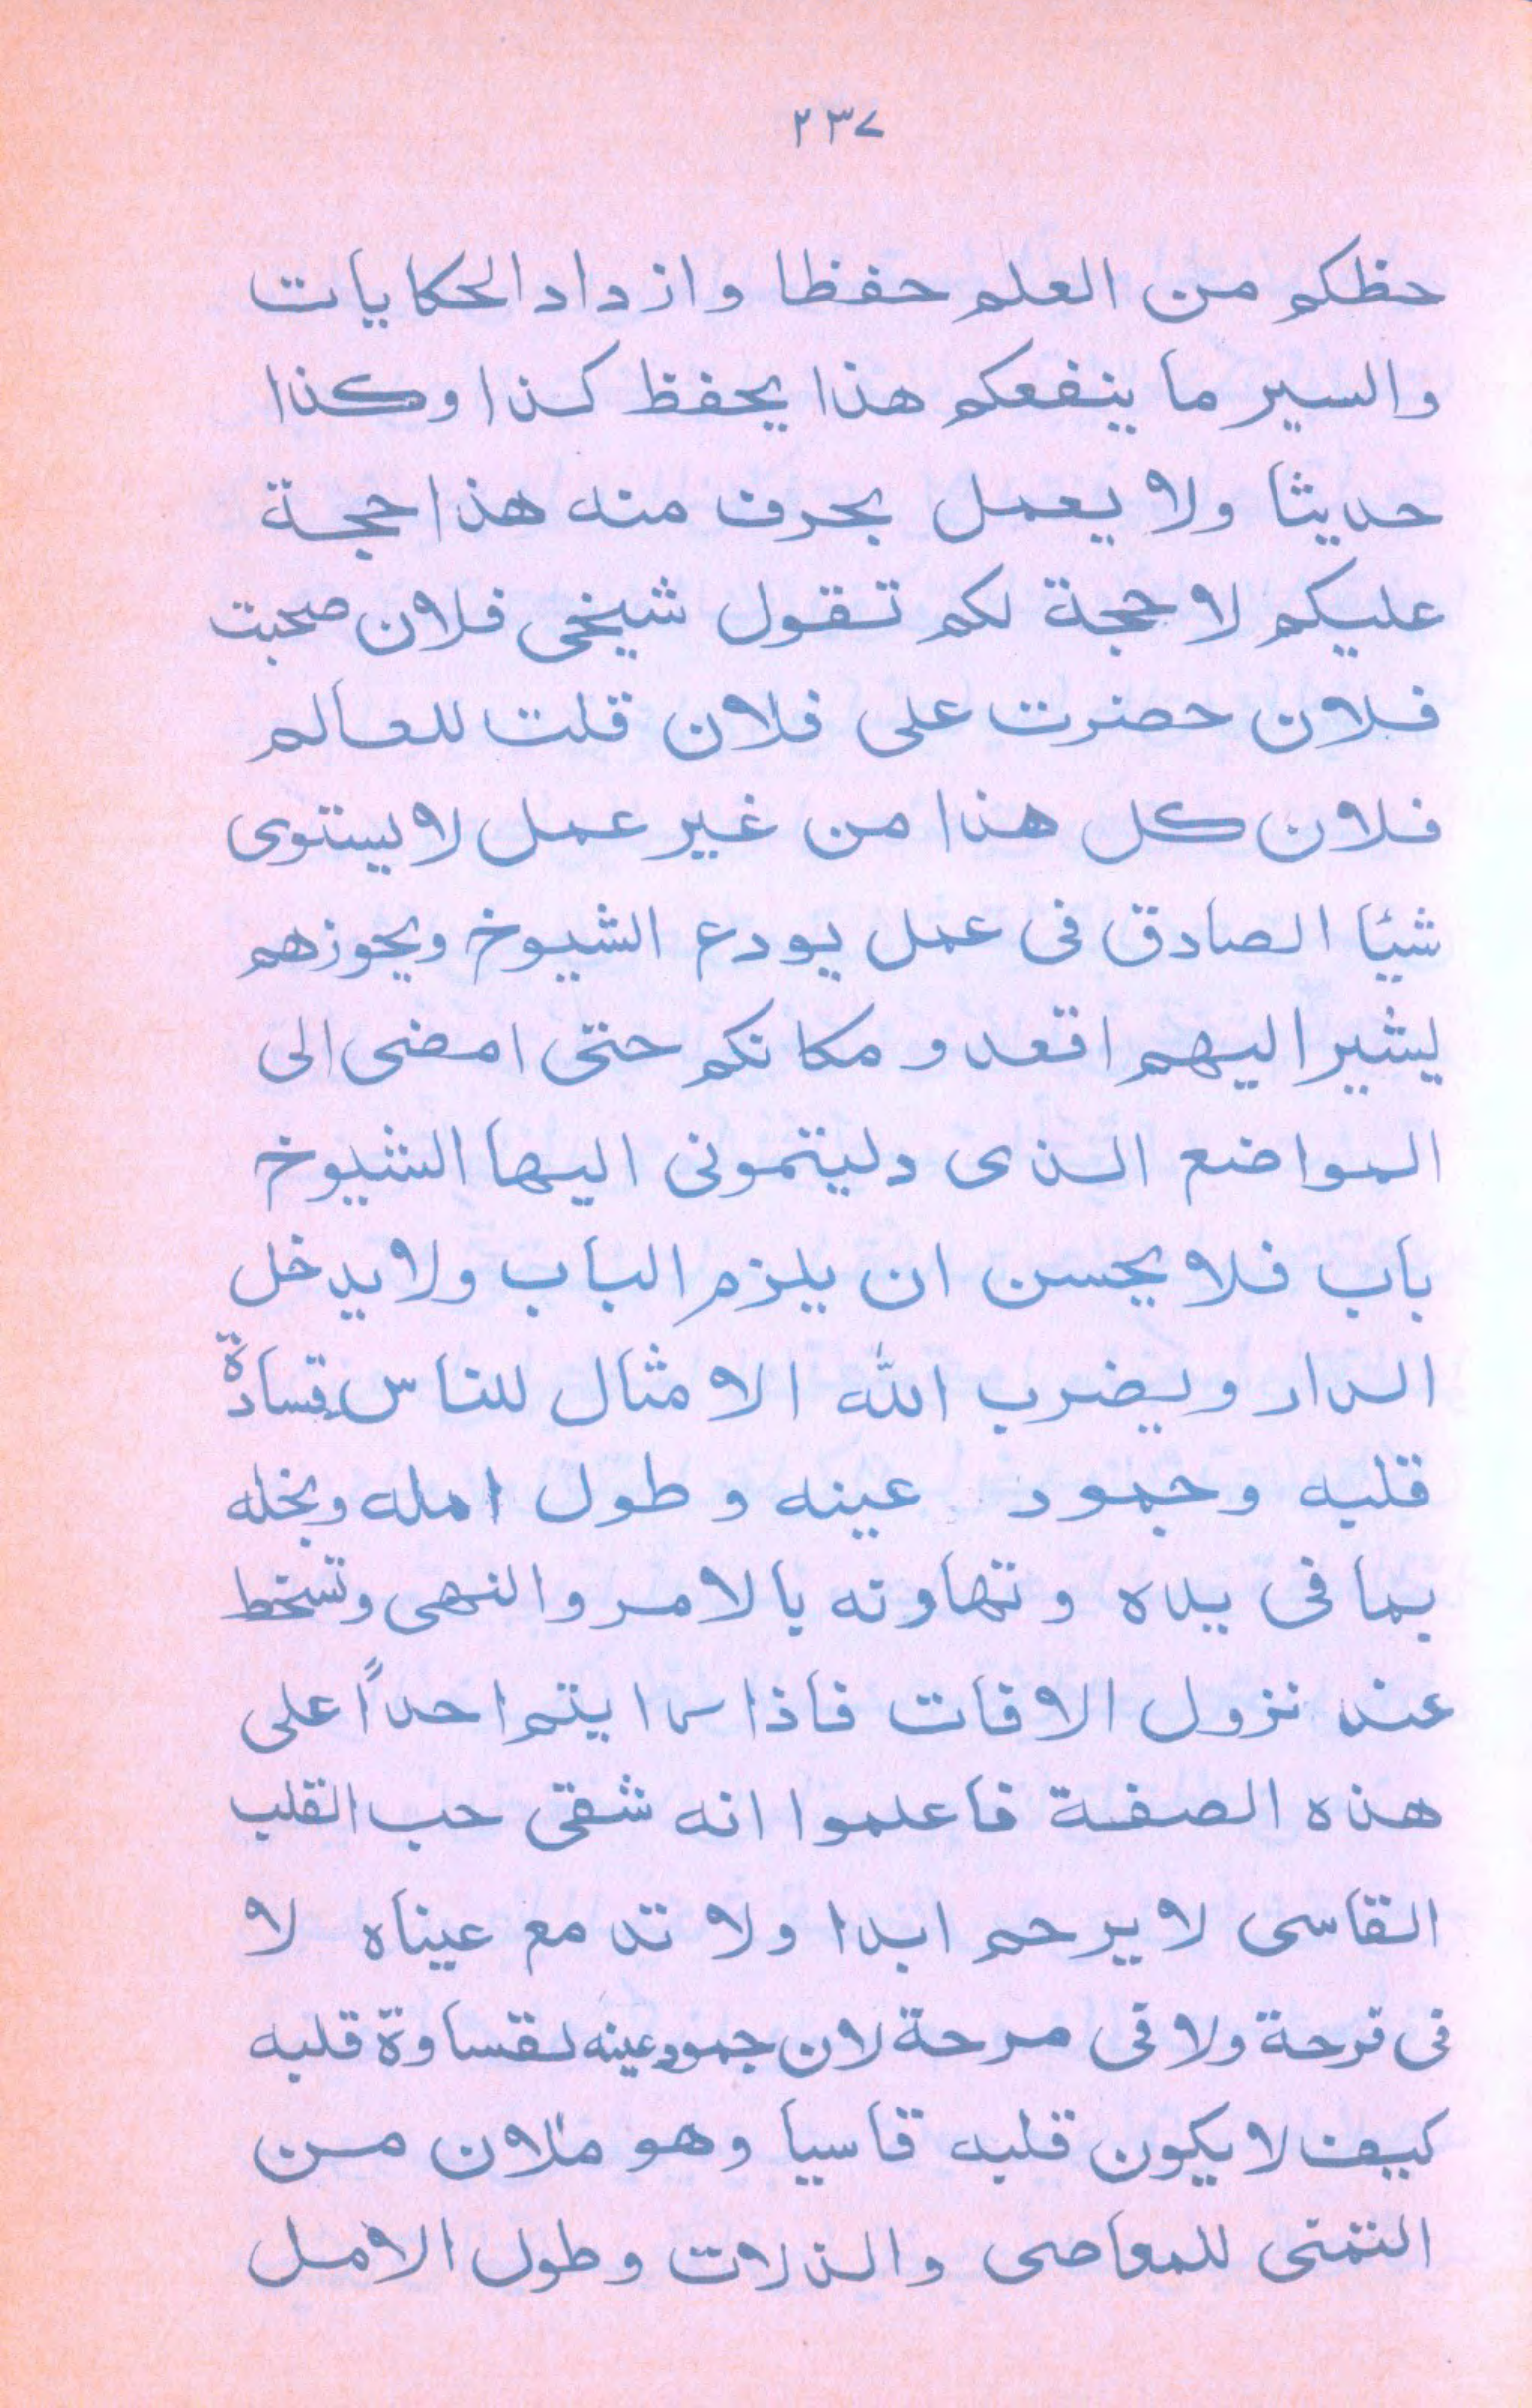 ٢٣٧
حظكم من العلم حفظا وازداد الحكايات
والسير ما ينفعكم هذا يحفظ كذا وكذا
حديثا ولا يعمل بحرف منه هذا حجة
عليكم لا حجة لكم تقول شيخى فلان صحبت
فلان حضرت على فلان قلت للعالم
فلان كل هذا من غير عمل لا يستوى
شيئا الصادق فى عمل يودع الشيوخ ويجوزهم
يشير اليهم اقعدو مكانكم حتى امضى الى
المواضع الذى دليتمونى اليها الشيوخ
باب فلا يحسن ان يلزم الباب ولا يدخل
الدار ويضرب الله الامثال للناس قسادة
قلبه وجمود عينه وطول امله وبخله
بما فى يده وتهاونه بالامر والنهى وتسخط
عند نزول الافات فاذا رايتم احداً على
هذه الصفة فاعلموا انه شقى حب القلب
القاسى لا يرحم ابدا ولا تدمع عيناه لا
فى قرحة ولا فى مرحة لان جمود عينه لقساوة قلبه
كيف لا يكون قلبه قاسيا وهو ملان من
التمتى للمعاصى والذلات وطول الامل